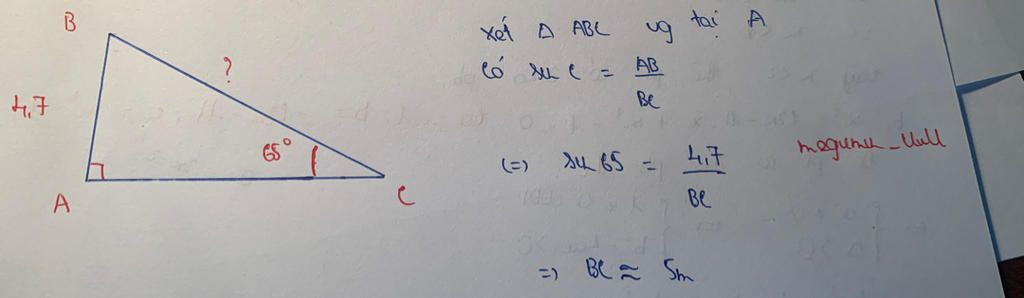 B
?
4,7
65°
A
C
xét Δ ABC vg tại A
có sin C = AB/BC
(=) sin 65 = 4,7/BC
=) BC ≈ 5m